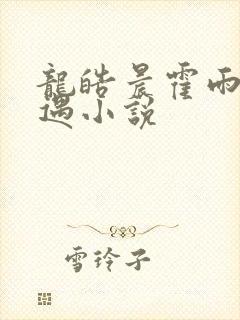 龍皓晨霍雨
遇小說
雪玲子